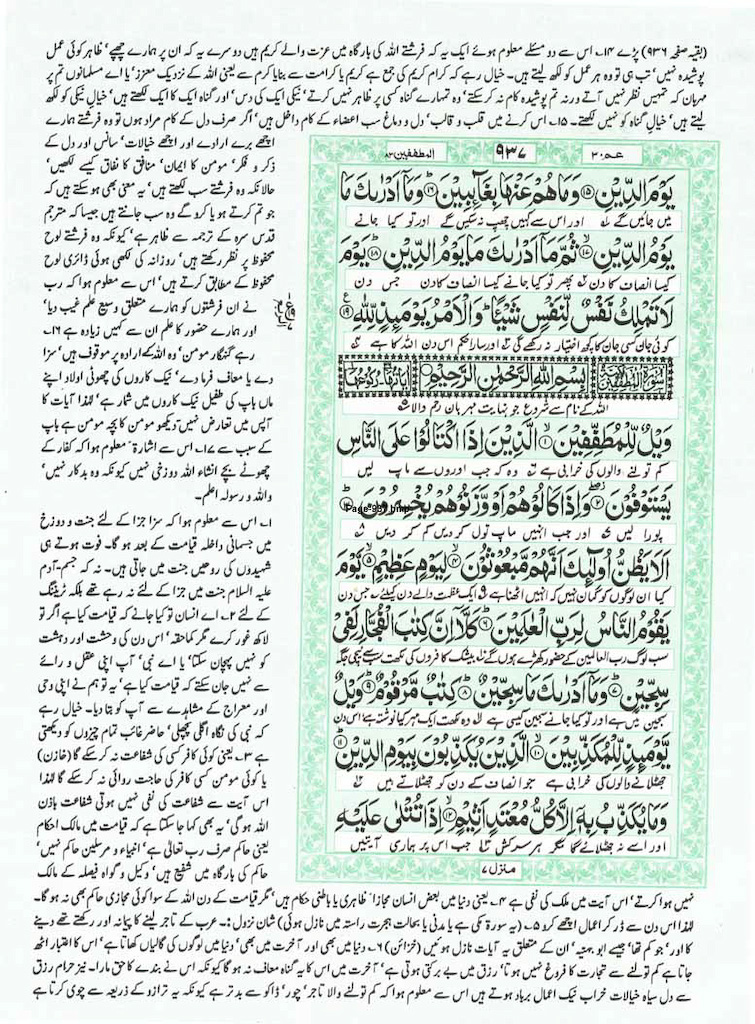 (بقیہ صفحہ ۹۳۶) پڑے ۱۴۔ اس سے دو مسئلے معلوم ہوئے ایک یہ کہ فرشتے اللہ کی بارگاہ میں عزت والے کریم ہیں دوسرے یہ کہ ان پر ہمارے چھپے' ظاہر کوئی عمل
پوشیدہ نہیں' تب ہی تو وہ ہر عمل کو لکھ لیتے ہیں۔ خیال رہے کہ کرام کریم کی جمع ہے کریم یا کرامت سے بنا یا کرم سے یعنی اللہ کے نزدیک معزز' یا اے مسلمانوں تم پر
مہربان کہ تمہیں نظر نہیں آتے ورنہ تم پوشیدہ کام نہ کر سکتے' وہ تمہارے گناہ کسی پر ظاہر نہیں کرتے' نیکی ایک کی دس' اور گناہ ایک کا ایک لکھتے ہیں' خیال نیکی کو لکھ
لیتے ہیں' خیال گناہ کو نہیں لکھتے۔ ۱۵۔ اس کرنے میں قلب و قالب' دل و دماغ سب اعضاء کے کام داخل ہیں' اگر صرف دل کے کام مراد ہوں تو وہ فرشتے ہمارے
اچھے برے ارادے اور اچھے خیالات' سانس اور دل کے
ذکر و فکر' مومن کا ایمان' منافق کا نفاق کیسے لکھیں'
حالانکہ وہ فرشتے سب لکھتے ہیں' یہ معنی بھی ہو سکتے ہیں کہ
جو تم کرتے ہو یا کرو گے وہ سب جانتے ہیں جیسا کہ مترجم
قدس سرہ کے ترجمہ سے ظاہر ہے' کیونکہ وہ فرشتے لوح
محفوظ پر نظر رکھتے ہیں' روزانہ کی لکھی ہوئی ڈائری لوح
محفوظ کے مطابق کرتے ہیں' اس سے معلوم ہوا کہ رب
نے ان فرشتوں کو ہمارے متعلق وسیع علم غیب دیا'
اور ہمارے حضور کا علم ان سے کہیں زیادہ ہے ۱۶۔
رہے گنہگار مومن' وہ اللہ کے ارادہ پر موقوف ہیں' سزا
دے یا معاف فرما دے' نیک کاروں کی چھوٹی اولاد اپنے
ماں باپ کی طفیل نیک کاروں میں شمار ہے' لہٰذا آیات کا
آپس میں تعارض نہیں' دیکھو مومن کا بچہ مومن ہے باپ
کے سبب سے ۱۷۔ اس اشارۃً معلوم ہوا کہ کفار کے
چھوٹے بچے انشاء اللہ دوزخی نہیں کیونکہ وہ بدکار نہیں'
واللہ و رسولہ اعلم۔
۱۔ اس سے معلوم ہوا کہ سزا جزا کے لئے جنت و دوزخ
میں جسمانی داخلہ قیامت کے بعد ہو گا۔ فوت ہوتے ہی
شہیدوں کی روحیں جنت میں جاتی ہیں۔ نہ کہ جسم' آدم
علیہ السلام جنت میں جزا کے لئے نہ رہے تھے بلکہ ٹریننگ
کے لئے ۲۔ اے انسان تو کیا جانے کہ قیامت کیا ہے اگر تو
لاکھ غور کرے مگر کماحقہ' اس دن کی وحشت اور دہشت
کو نہیں پہچان سکتا' یا اے نبی' آپ اپنی عقل و رائے
سے نہیں جان سکتے کہ قیامت کیا ہے' یہ تو ہم نے اپنی وحی
اور معراج کے مشاہدے سے آپ کو بتا دیا۔ خیال رہے
کہ نبی کی نگاہ اگلی پچھلی' حاضر غائب تمام چیزوں کو دیکھتی
ہے ۳۔ یعنی کوئی کافر کسی کی شفاعت نہ کر سکے گا (خازن)
یا کوئی مومن کسی کافر کی حاجت روائی نہ کر سکے گا لہٰذا
اس آیت سے شفاعت کی نفی نہیں ہوتی شفاعت باذن
اللہ ہوگی' یہ بھی کہا جا سکتا ہے کہ قیامت میں مالک احکام
یعنی حاکم صرف رب تعالیٰ ہے' انبیاء و مرسلین حاکم نہیں'
حاکم کی بارگاہ میں شفیع ہیں' وکیل و گواہ فیصلہ کے مالک
عمّ ۳۰
۹۳۷
المطففین ۸۳
يَوْمَ الدِّيْنِ ۝۱۵ وَمَا هُمْ عَنْهَا بِغَآىِٕبِيْنَ ۝۱۶ وَمَاۤ اَدْرٰىكَ مَا
میں جائیں گے اور اس سے کہیں چھپ نہ سکیں گے اور تو کیا جانے
يَوْمُ الدِّيْنِ ۝۱۷ ثُمَّ مَاۤ اَدْرٰىكَ مَا يَوْمُ الدِّيْنِ ۝۱۸ يَوْمَ
کیسا انصاف کا دن پھر تو کیا جانے کیسا انصاف کا دن جس دن
لَا تَمْلِكُ نَفْسٌ لِّنَفْسٍ شَيْـًٔا وَالْاَمْرُ يَوْمَىِٕذٍ لِّلّٰهِ ۝۱۹
کوئی جان کسی جان کا کچھ اختیار نہ رکھے گی اور سارا حکم اس دن اللہ کا ہے
سُوْرَةُ الْمُطَفِّفِيْنَ بِسْمِ اللّٰهِ الرَّحْمٰنِ الرَّحِيْمِ
اللہ کے نام سے شروع جو نہایت مہربان رحم والا
وَيْلٌ لِّلْمُطَفِّفِيْنَ ۝۱ الَّذِيْنَ اِذَا اكْتَالُوْا عَلَى النَّاسِ
کم تولنے والوں کی خرابی ہے وہ کہ جب اوروں سے ماپ لیں
يَسْتَوْفُوْنَ ۝۲ وَاِذَا كَالُوْهُمْ اَوْ وَّزَنُوْهُمْ يُخْسِرُوْنَ ۝۳
Page-937.bmp
پورا لیں اور جب انہیں ماپ تول کر دیں کم کر دیں
اَلَا يَظُنُّ اُولٰٓىِٕكَ اَنَّهُمْ مَّبْعُوْثُوْنَ ۝۴ لِيَوْمٍ عَظِيْمٍ ۝۵ يَّوْمَ
کیا ان لوگوں کو گمان نہیں کہ انہیں اٹھنا ہے ایک عظمت والے دن کیلئے جس دن
يَقُوْمُ النَّاسُ لِرَبِّ الْعٰلَمِيْنَ ۝۶ كَلَّاۤ اِنَّ كِتٰبَ الْفُجَّارِ لَفِيْ
سب لوگ رب العالمین کے حضور کھڑے ہوں گے بیشک کافروں کی لکھت سب سے نیچی جگہ
سِجِّيْنٍ ۝۷ وَمَاۤ اَدْرٰىكَ مَا سِجِّيْنٌ ۝۸ كِتٰبٌ مَّرْقُوْمٌ ۝۹ وَيْلٌ
سجین میں ہے اور تو کیا جانے سجین کیسی ہے وہ لکھت ایک مہر کیا نوشتہ ہے اس دن
يَّوْمَىِٕذٍ لِّلْمُكَذِّبِيْنَ ۝۱۰ الَّذِيْنَ يُكَذِّبُوْنَ بِيَوْمِ الدِّيْنِ ۝۱۱
جھٹلانے والوں کی خرابی ہے جو انصاف کے دن کو جھٹلاتے ہیں
وَمَا يُكَذِّبُ بِهٖۤ اِلَّا كُلُّ مُعْتَدٍ اَثِيْمٍ ۝۱۲ اِذَا تُتْلٰى عَلَيْهِ
اور اسے نہ جھٹلائے گا مگر ہر سرکش جب اس پر ہماری آیتیں
منزل ۷
نہیں ہوا کرتے' اس آیت میں ملک کی نفی ہے ۴۔ یعنی دنیا میں بعض انسان مجازاً' ظاہری یا باطنی حکام ہیں' مگر قیامت کے دن اللہ کے سوا کوئی مجازی حاکم بھی نہ ہو گا۔
لہٰذا اس دن سے ڈر کر اعمال اچھے کرو ۵۔ (یہ سورۃ مکی ہے یا مدنی یا بحالت ہجرت راستہ میں نازل ہوئی) شان نزول :۔ عرب کے تاجر لینے کا پیمانہ اور رکھتے تھے دینے
کا اور' جو کم تھا' جیسے ابو جہینہ' ان کے متعلق یہ آیات نازل ہوئیں (خزائن) ۶۔ دنیا میں بھی اور آخرت میں بھی' دنیا میں لوگوں کی گالیاں کھاتا ہے' اس کا اعتبار اٹھ
جاتا ہے کم تولنے سے تجارت کا فروغ نہیں ہوتا' رزق میں بے برکتی ہوتی ہے' آخرت میں اس کا یہ گناہ معاف نہ ہو گا کیونکہ اس نے بندے کا حق مارا۔ نیز حرام رزق
سے دل سیاہ خیالات خراب نیک اعمال برباد ہوتے ہیں اس سے معلوم ہوا کہ کم تولنے والا تاجر' چور' ڈاکو سے بدتر ہے کیونکہ یہ ترازو کے ذریعہ سے چوری کرتا ہے